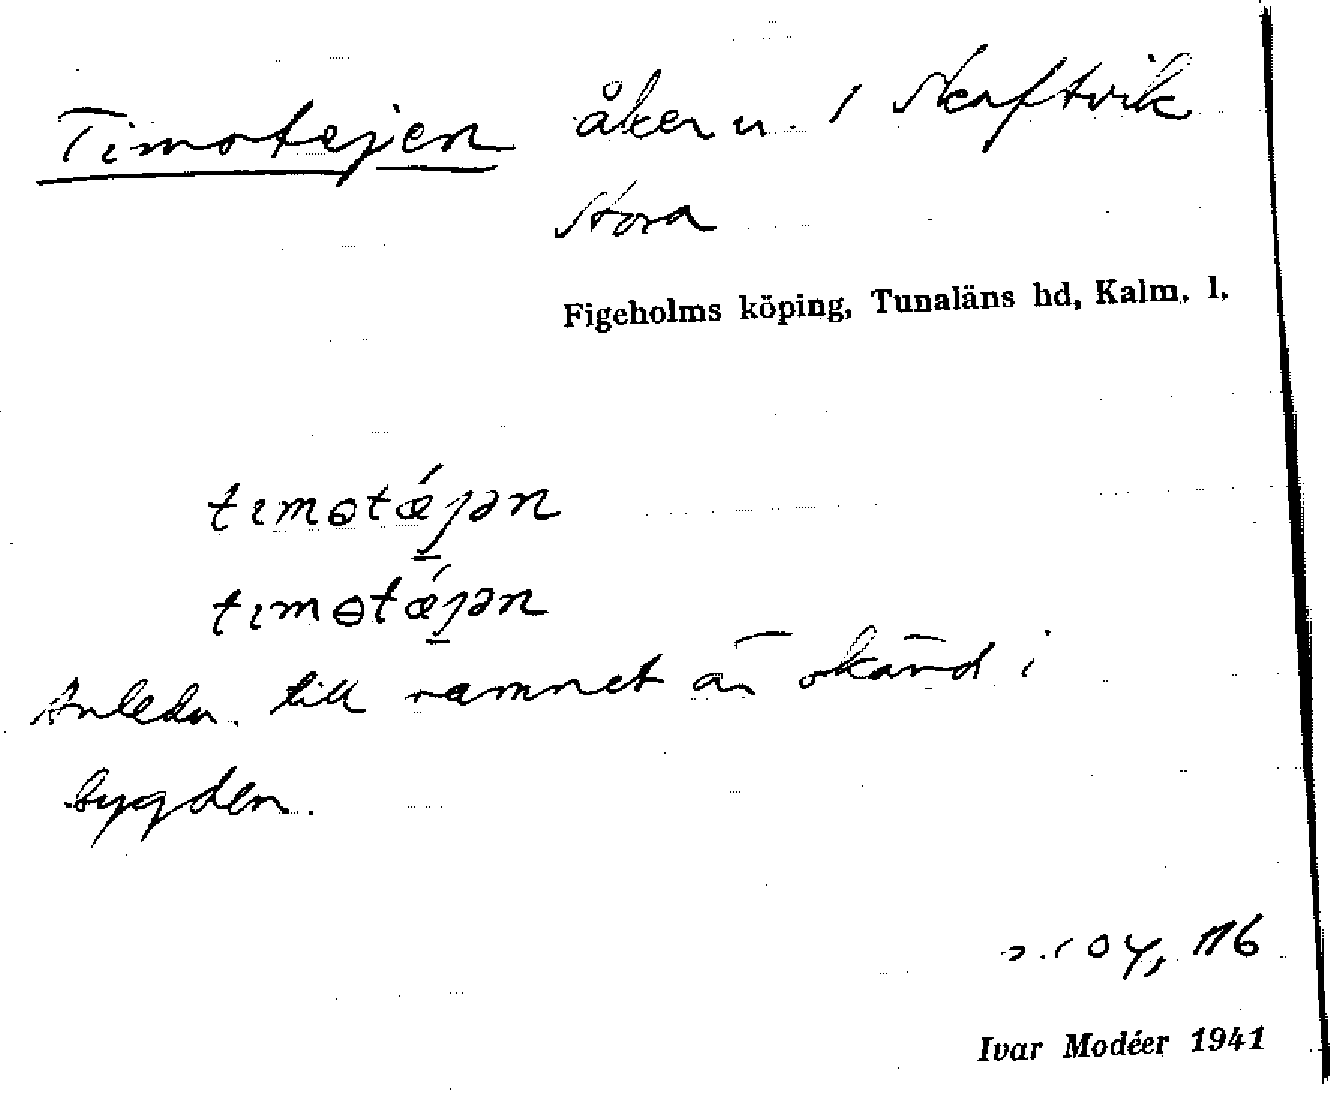 Timotejen åker u. / Skaftvik
Stora
Figeholms köping, Tunaläns hd, Kalm. l.
tımɵtǽȷən
tımɵtǽȷən
Anledn. till namnet är okänd i
bygden.
116
Ivar Modéer 1941